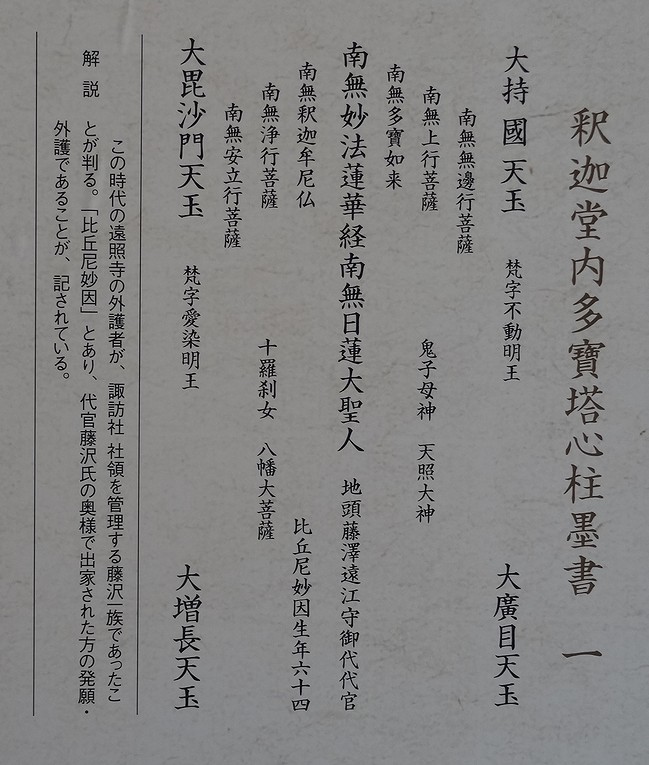 釈迦堂内多寶塔心柱墨書 一
大持國天玉 梵字不動明王 大廣目天玉
南無無邊行菩薩
南無上行菩薩 鬼子母神 天照大神
南無多寶如来
南無妙法蓮華経南無日蓮大聖人 地頭藤澤遠江守御代代官
南無釈迦牟尼仏 比丘尼妙因生年六十四
南無浄行菩薩 十羅刹女 八幡大菩薩
南無安立行菩薩
大毘沙門天玉 梵字愛染明王 大増長天玉
解説
この時代の遠照寺の外護者が、諏訪社 社領を管理する藤沢一族であったこ
とが判る。「比丘尼妙因」とあり、代官藤沢氏の奥様で出家された方の発願・
外護であることが、記されている。